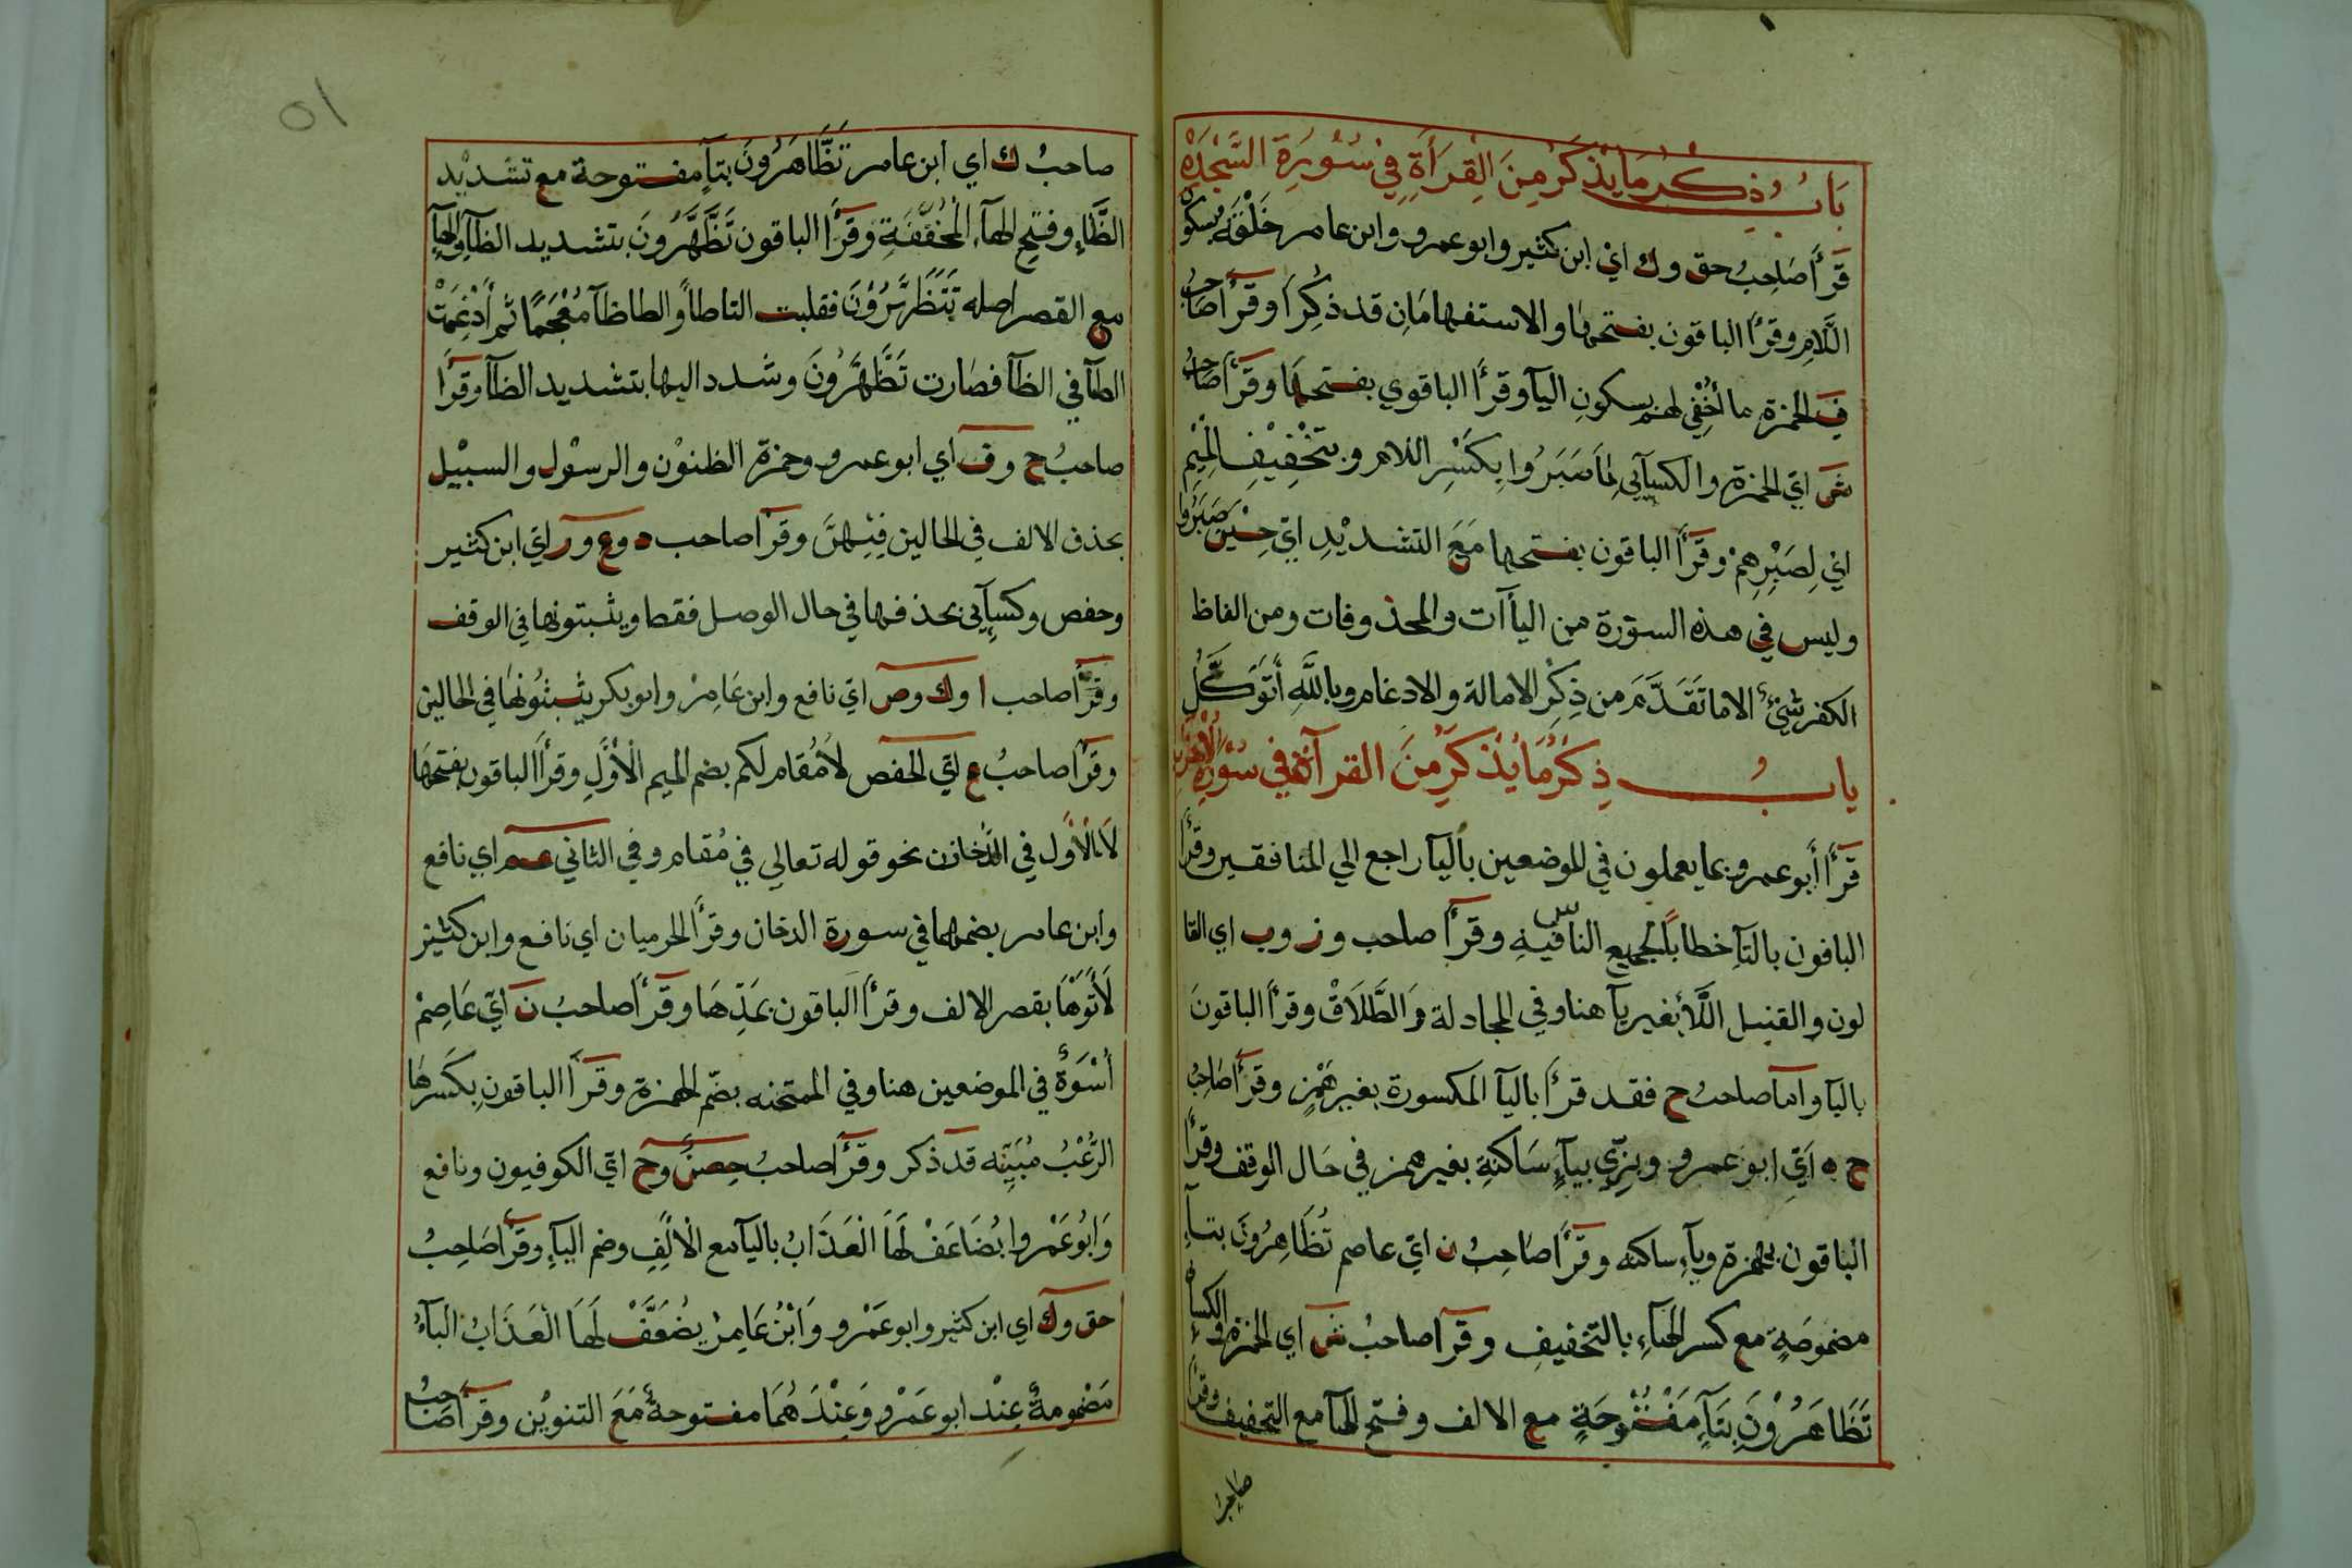 باب ذكر ما يذكر من القرأة في سُورة السَّجْدَة
قرأ صاحب حق وك اي ابن كثير وابو عمرو وابن عامر خَلْقَهُ بسكون
اللَّامِ وقرأ الباقون بفتحها والاستفهامَانِ قد ذُكِرَا وقرأ صاحبُ
ف الحمزة ما أُخْفِي لهم بسكون اليآ وقرأ الباقوي بفتحها وقرأ صاحبُ
ش اي الحمزة والكسآيي لِمَا صَبَرُوا بِكَسْرِ اللام وبتَخْفِيْفِ الْمِيْمِ
ايْ لِصَبْرِهِمْ وقرأ الباقون بفتحها مَعَ التشديْدِ ايّ حِيْنَ صَبَرُوا
وليس في هذه السورة من اليأآت والمحذوفات ومن الفاظ
الكفر شيْئ الا ما تَقَدَّمَ من ذِكْرِ الامالة والادغام وبِاللَّهِ أَتَوَكَّلُ
باب ذِكْرُ مَا يُذْكَرُ مِنَ القرآة في سُوْرة الْأَحْزَاب
قَرَأَ أَبو عمرو بما يعملون في الموضعين باليآ راجع الي المنافقين وقرأ
الباقون بالتآ خطابًا لجميع الناس فيه وقرأ صاحب و ز وب اي القا
لون والقنبل اللَّأ بغير يآ هنا وفي المجادلة وَالطَّلَاقْ وقرأ الباقونَ
باليآ واما صاحبُ ح فقد قرأ باليآ المكسورة بغير هَمْزٍ وقرأ صاحبُ
ح ه اَيّ ابو عمرو وبزّي بيآءٍ سَاكنةٍ بغير همز في حَال الوقف وقرأ
الباقون بهمزة ويآءٍ ساكنه وقرأ صاحبُ ن ايّ عاصم تُظَاهِرُونَ بتآءٍ
مضمومَةٍ مع كسر الهآءِ بالتخفيفِ وقرآ صاحبُ ش اي الحمزة والكساء
تَظَاهَرُوْنَ بَتَآءٍ مَفْتُوْحَةٍ مع الالف وفتح الهآ مع التخفيف وقرأ
صاحِبُ
٥١
صاحبُ ك اي ابن عامر تَظَّاهَرُونَ بتآءٍ مفتوحة مع تشديْد
الظَّآءِ وفتحِ الهآءِ الْمُخَفَّفَةِ وَقَرَأَ الباقون تَظَّهَّرُونَ بتشديد الظآءِ والهآءِ
مع القصر اصله تَتَظَهَّرُوْنَ فقلبت التا طاً والطا ظآ مُعْجَمًا ثم أُدْغِمَتْ
الظآ في الظآ فصَارت تَظَّهَّرُونَ وشدد اليها بتشديد الظآ وقرأ
صاحبُ ح وف اي ابو عمرو وحمزة الظنوْن والرسوْل والسبيْل
بحذف الالف في الحالين فِيْهِنَّ وقرآ صاحب د وع ور ايّ ابن كثير
وحفص وكسآيي بحذفها في حال الوصل فقط ويثبتونها في الوقف
وقرأ صاحب ا وك وص ايّ نافع وابن عَامِرْ وابو بكر يثبتُونَهَا في الحالين
وقرآ صاحبُ ع ايّ الحفص لَا مُقام لكم بضم الميم الْأَوَّلِ وقرأ الباقون بفتحهَا
لَا الْأَوّل في الدُّخازن نحو قوله تعالي في مُقام وفي الثاني عم اي نافع
وابن عامر بضمهما في سورة الدخان وقرأ الحرميان اي نافع وابن كثير
لَأَتَوْهَا بقصر الالف وقرأ الباقون بمَدِّهَا وقرأ صاحبُ ن ايّ عَاصِمْ
أُسْوَةٌ في الموضعين هنا وفي الممتحنه بضمّ الهمزة وقرأ الباقون بِكَسْرِهَا
الرُّعْبُ مُبَيِّنَه قد ذكر وقرأ صاحبُ حِصْنٌ وح ايّ الكوفيون ونافع
وَابُو عَمْرو يُضَاعَفْ لَهَا الْعَذَابُ باليآ مع الْأَلِفِ وضم اليآءِ وقرأ صَاحِبُ
حق وك اي ابن كثير وابو عَمْرو وَابْنُ عَامِرْ يضعَّفْ لَهَا الْعَذَابُ اليآءُ
مَضْمُومةٌ عِنْد ابو عَمْرو وَعِنْدَهُمَا مفتوحةٌ مَعَ التنوِيْن وقرأ صَاحبُ